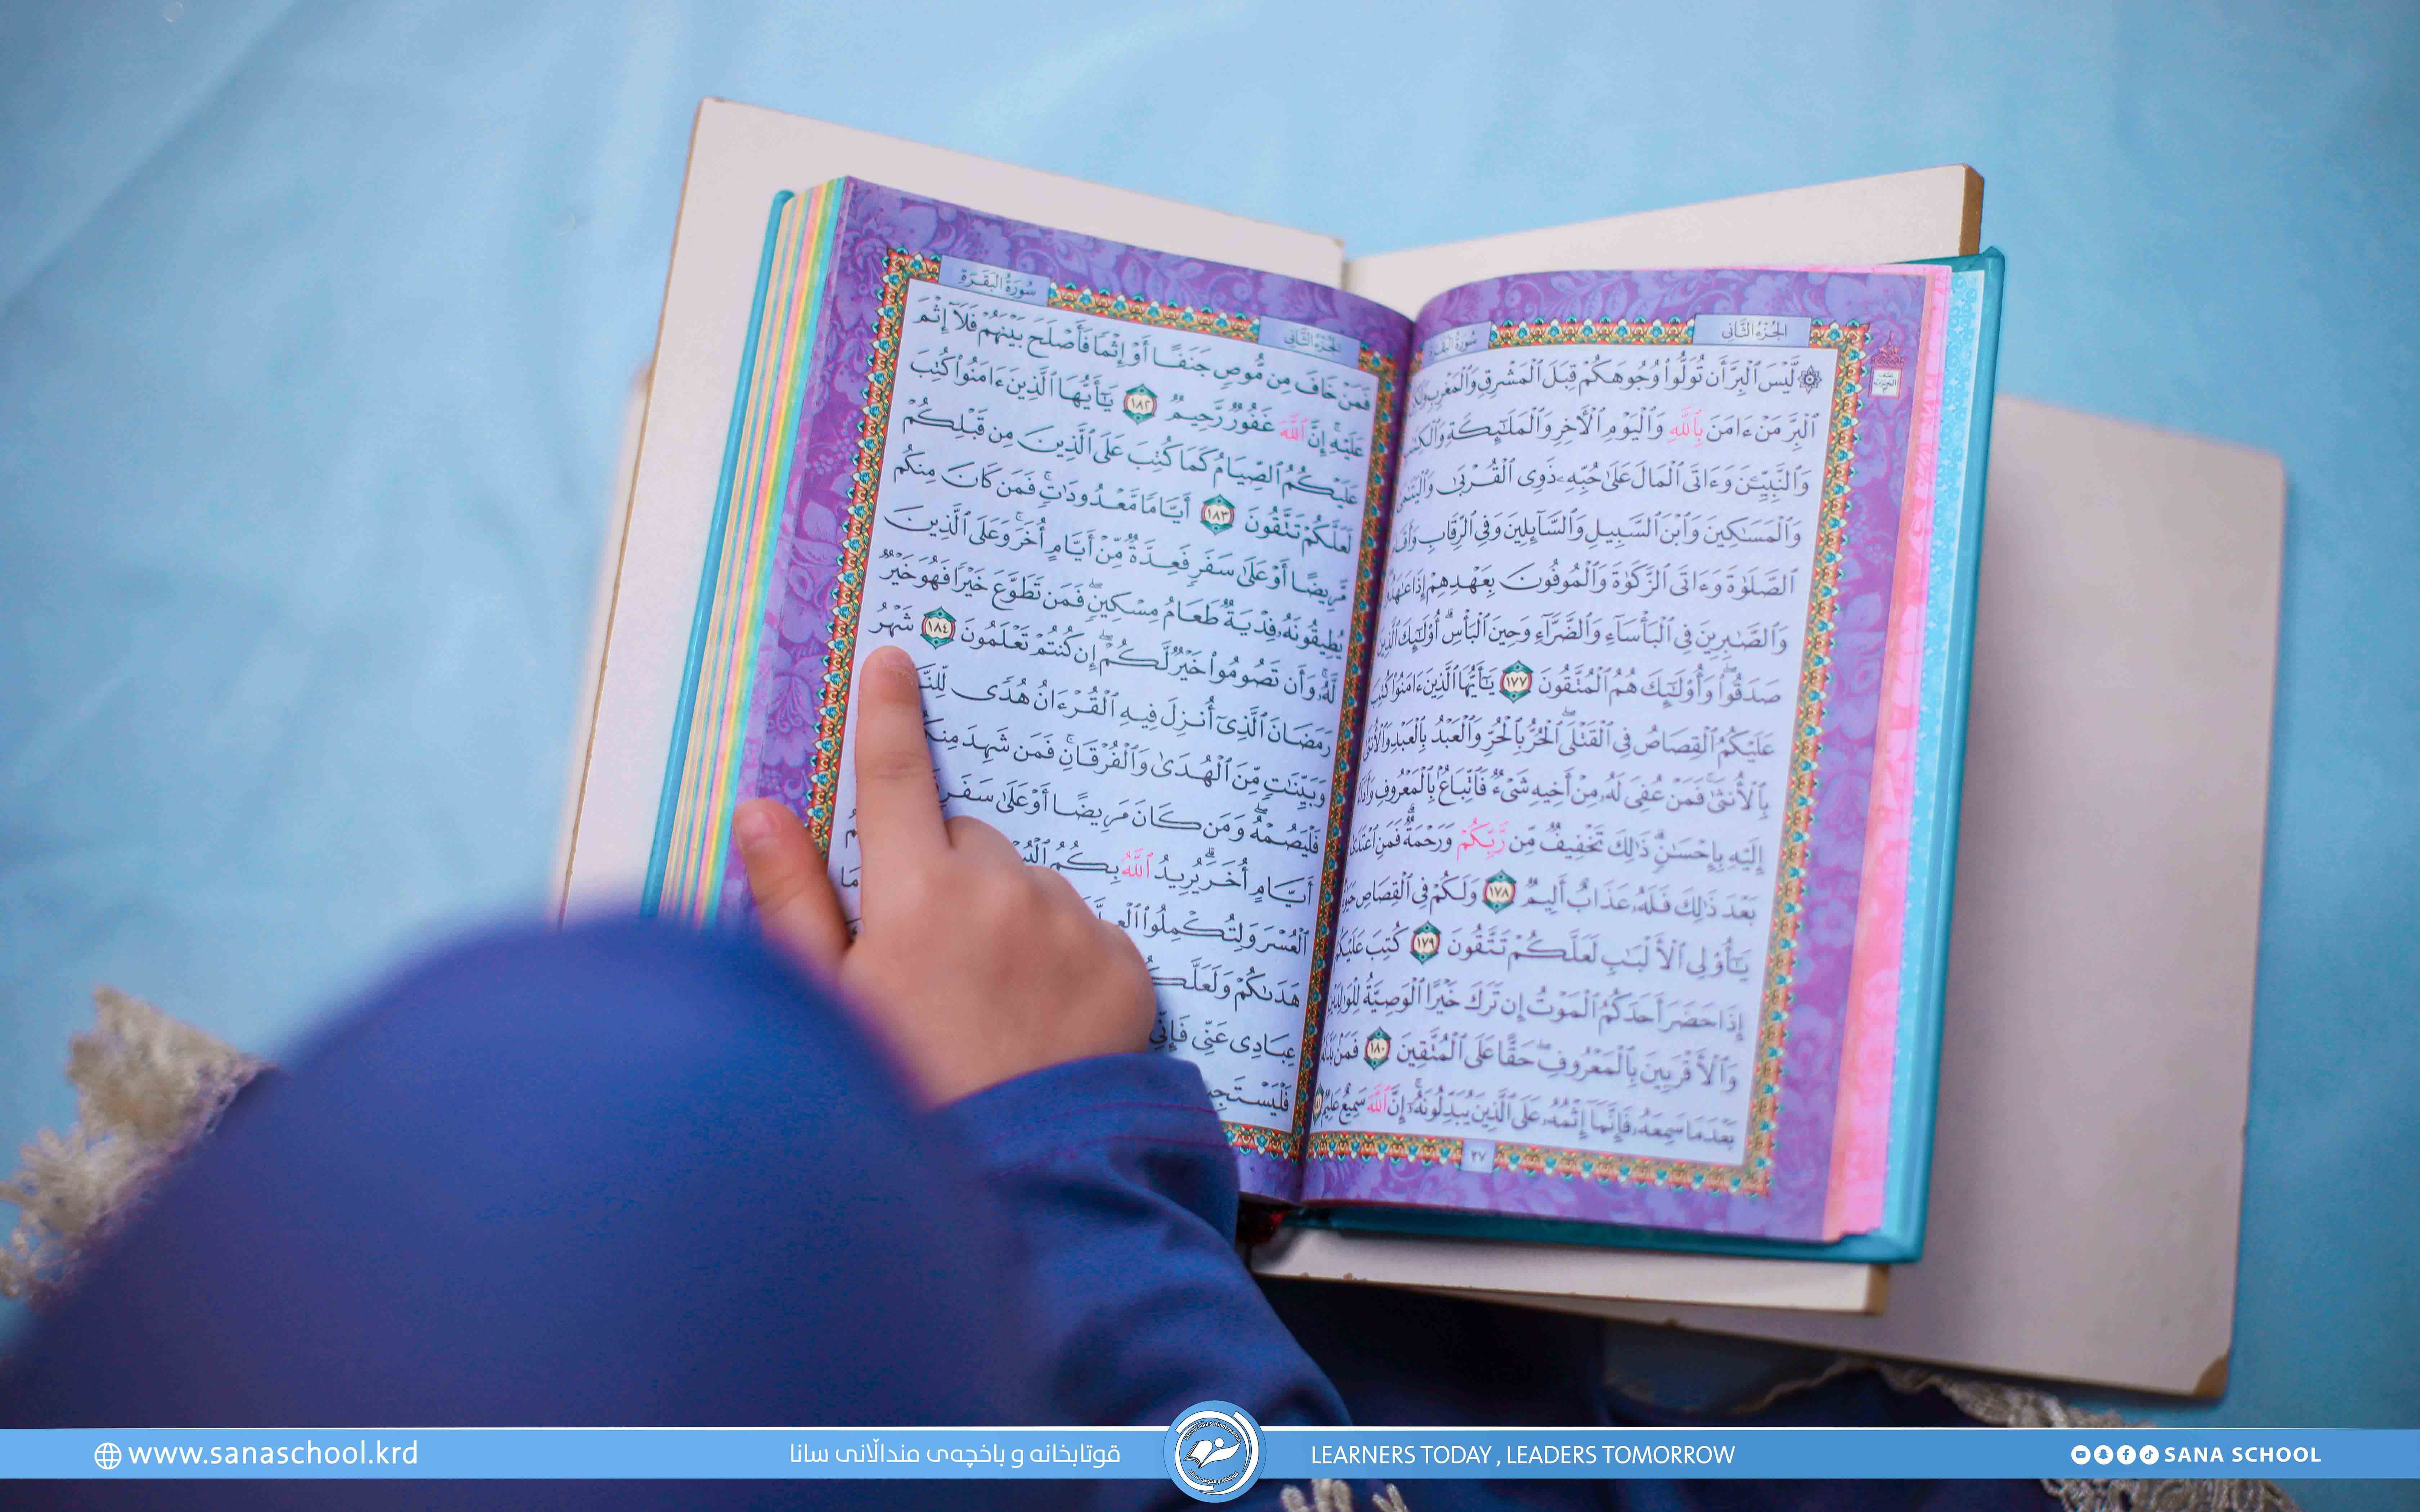 الجزء الثاني
سورة البقرة
۞ لَّيْسَ ٱلْبِرَّ أَن تُوَلُّوا۟ وُجُوهَكُمْ قِبَلَ ٱلْمَشْرِقِ وَٱلْمَغْرِبِ
ٱلْبِرَّ مَنْ ءَامَنَ بِٱللَّهِ وَٱلْيَوْمِ ٱلْـَٔاخِرِ وَٱلْمَلَـٰٓئِكَةِ
وَٱلنَّبِيِّـۧنَ وَءَاتَى ٱلْمَالَ عَلَىٰ حُبِّهِۦ ذَوِى ٱلْقُرْبَىٰ وَٱلْيَتَـٰمَىٰ
وَٱلْمَسَـٰكِينَ وَٱبْنَ ٱلسَّبِيلِ وَٱلسَّآئِلِينَ وَفِى ٱلرِّقَابِ
ٱلصَّلَوٰةَ وَءَاتَى ٱلزَّكَوٰةَ وَٱلْمُوفُونَ بِعَهْدِهِمْ إِذَا
وَٱلصَّـٰبِرِينَ فِى ٱلْبَأْسَآءِ وَٱلضَّرَّآءِ وَحِينَ ٱلْبَأْسِ ۗ أُو۟لَـٰٓئِكَ ٱلَّذِينَ
صَدَقُوا۟ ۖ وَأُو۟لَـٰٓئِكَ هُمُ ٱلْمُتَّقُونَ ١٧٧ يَـٰٓأَيُّهَا ٱلَّذِينَ ءَامَنُوا۟ كُتِبَ
عَلَيْكُمُ ٱلْقِصَاصُ فِى ٱلْقَتْلَى ۖ ٱلْحُرُّ بِٱلْحُرِّ وَٱلْعَبْدُ بِٱلْعَبْدِ وَٱلْأُنثَىٰ
بِٱلْأُنثَىٰ ۚ فَمَنْ عُفِىَ لَهُۥ مِنْ أَخِيهِ شَىْءٌ فَٱتِّبَاعٌۢ بِٱلْمَعْرُوفِ
إِلَيْهِ بِإِحْسَـٰنٍ ۗ ذَٰلِكَ تَخْفِيفٌ مِّن رَّبِّكُمْ وَرَحْمَةٌ ۗ فَمَنِ ٱعْتَدَىٰ
بَعْدَ ذَٰلِكَ فَلَهُۥ عَذَابٌ أَلِيمٌ ١٧٨ وَلَكُمْ فِى ٱلْقِصَاصِ
يَـٰٓأُو۟لِى ٱلْأَلْبَـٰبِ لَعَلَّكُمْ تَتَّقُونَ ١٧٩ كُتِبَ عَلَيْكُمْ
إِذَا حَضَرَ أَحَدَكُمُ ٱلْمَوْتُ إِن تَرَكَ خَيْرًا ٱلْوَصِيَّةُ لِلْوَٰلِدَيْنِ
وَٱلْأَقْرَبِينَ بِٱلْمَعْرُوفِ ۖ حَقًّا عَلَى ٱلْمُتَّقِينَ ١٨٠ فَمَنۢ بَدَّلَهُۥ
بَعْدَمَا سَمِعَهُۥ فَإِنَّمَآ إِثْمُهُۥ عَلَى ٱلَّذِينَ يُبَدِّلُونَهُۥٓ ۚ إِنَّ ٱللَّهَ سَمِيعٌ عَلِيمٌ
٢٧
الجزء الثاني
سورة البقرة
فَمَنْ خَافَ مِن مُّوصٍ جَنَفًا أَوْ إِثْمًا فَأَصْلَحَ بَيْنَهُمْ فَلَآ إِثْمَ
عَلَيْهِ ۚ إِنَّ ٱللَّهَ غَفُورٌ رَّحِيمٌ ١٨٢ يَـٰٓأَيُّهَا ٱلَّذِينَ ءَامَنُوا۟ كُتِبَ
عَلَيْكُمُ ٱلصِّيَامُ كَمَا كُتِبَ عَلَى ٱلَّذِينَ مِن قَبْلِكُمْ
لَعَلَّكُمْ تَتَّقُونَ ١٨٣ أَيَّامًا مَّعْدُودَٰتٍ ۚ فَمَن كَانَ مِنكُم
مَّرِيضًا أَوْ عَلَىٰ سَفَرٍ فَعِدَّةٌ مِّنْ أَيَّامٍ أُخَرَ ۚ وَعَلَى ٱلَّذِينَ
يُطِيقُونَهُۥ فِدْيَةٌ طَعَامُ مِسْكِينٍ ۖ فَمَن تَطَوَّعَ خَيْرًا فَهُوَ خَيْرٌ
لَّهُۥ ۚ وَأَن تَصُومُوا۟ خَيْرٌ لَّكُمْ ۖ إِن كُنتُمْ تَعْلَمُونَ ١٨٤ شَهْرُ
رَمَضَانَ ٱلَّذِىٓ أُنزِلَ فِيهِ ٱلْقُرْءَانُ هُدًى
وَبَيِّنَـٰتٍ مِّنَ ٱلْهُدَىٰ وَٱلْفُرْقَانِ ۚ فَمَن شَهِدَ
فَلْيَصُمْهُ ۖ وَمَن كَانَ مَرِيضًا أَوْ عَلَىٰ سَفَرٍ
أَيَّامٍ أُخَرَ ۗ يُرِيدُ ٱللَّهُ بِكُمُ
ٱلْعُسْرَ وَلِتُكْمِلُوا۟
هَدَىٰكُمْ
عِبَادِى عَنِّى فَإِنِّى
www.sanaschool.krd
قوتابخانە و باخچەی منداڵانی سانا
LEARNERS TODAY , LEADERS TOMORROW
SANA SCHOOL